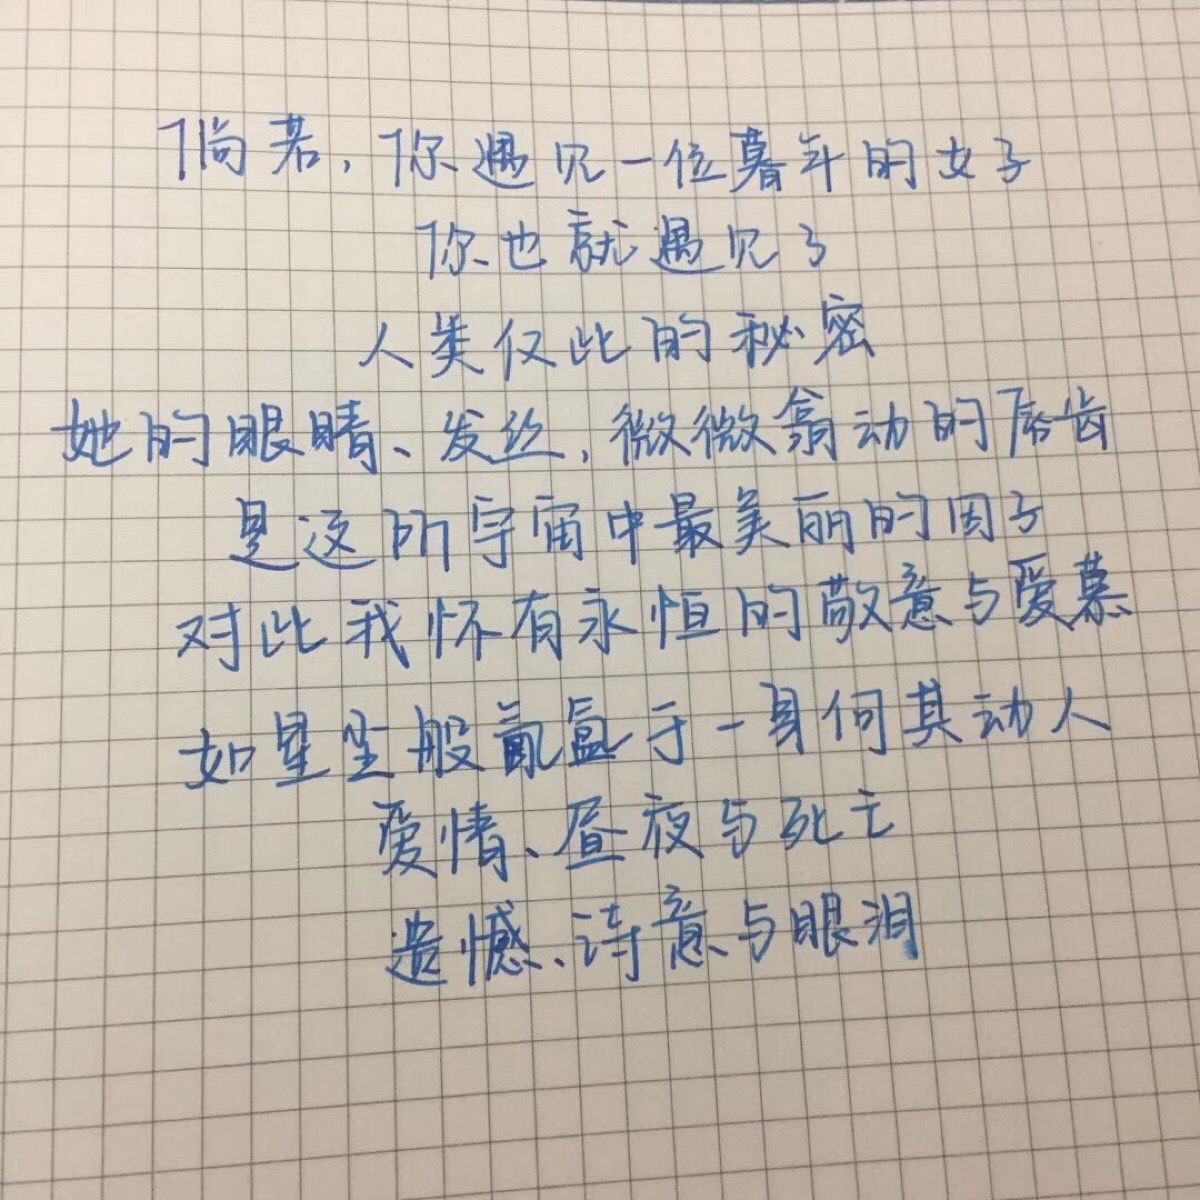 倘若，你遇见一位暮年的女子
你也就遇见了
人类仅此的秘密
她的眼睛、发丝，微微翕动的唇齿
是这所宇宙中最美丽的因子
对此我怀有永恒的敬意与爱慕
如星尘般氤氲于一身何其动人
爱情、昼夜与死亡
遗憾、诗意与眼泪